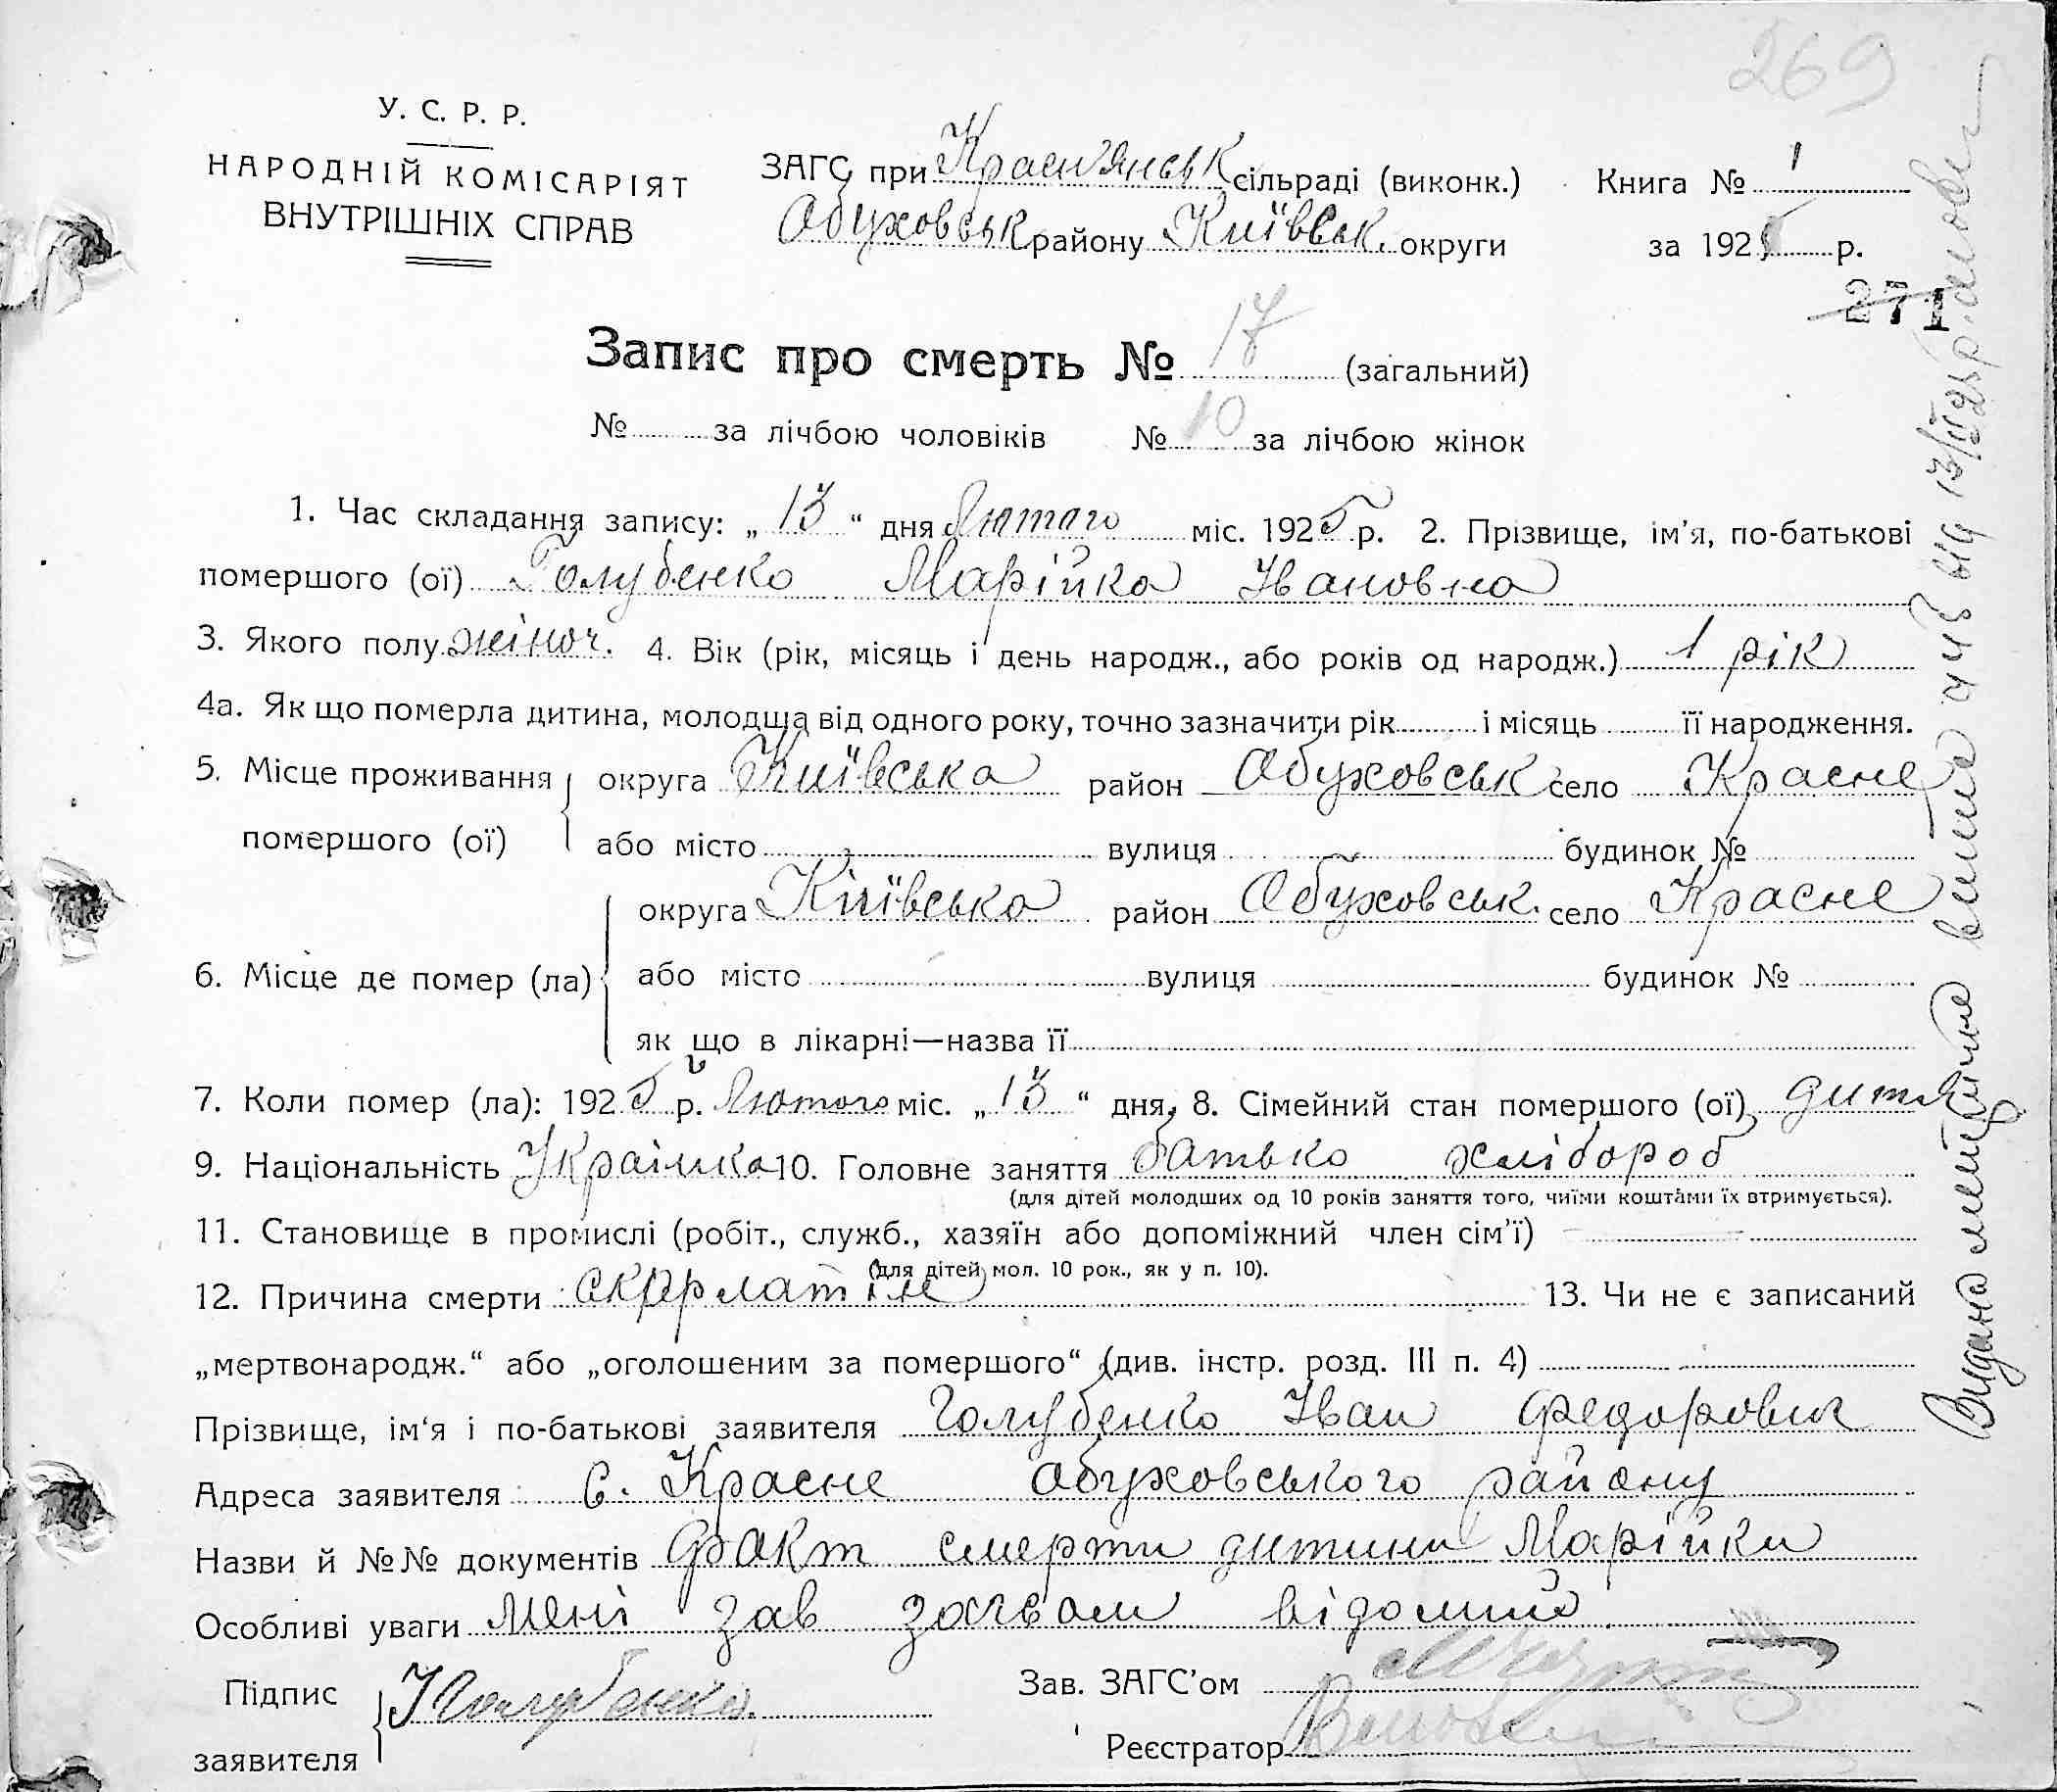 269
У. С. Р. Р.
НАРОДНІЙ КОМІСАРІЯТ
ВНУТРІШНІХ СПРАВ
ЗАГС при Красн'янськ сільраді (виконк.)
Обуховськ району Київськ. округи
Книга № 1
за 1925 р.
271
Запис про смерть № 17 (загальний)
№ за лічбою чоловіків № 10 за лічбою жінок
1. Час складання запису: „ 13 “ дня Лютого міс. 1925 р. 2. Прізвище, ім'я, по-батькові
помершого (ої) Голубенко Марійка Івановна
3. Якого полу жіноч. 4. Вік (рік, місяць і день народж., або років од народж.) 1 рік
4а. Як що померла дитина, молодща від одного року, точно зазначити рік і місяць її народження.
5. Місце проживання помершого (ої) округа Київська район Обуховськ село Красне
або місто вулиця будинок №
6. Місце де помер (ла) округа Київська район Обуховськ. село Красне
або місто вулиця будинок №
як що в лікарні—назва її
7. Коли помер (ла): 1925 р. Лютого міс. „ 13 “ дня, 8. Сімейний стан помершого (ої) дитя
9. Національність Українка 10. Головне заняття батько хлібороб
(для дітей молодших од 10 років заняття того, чиїми коштами їх втримується).
11. Становище в промислі (робіт., служб., хазяїн або допоміжний член сім'ї)
(для дітей мол. 10 рок., як у п. 10).
12. Причина смерти скарлатіне 13. Чи не є записаний
„мертвонародж.“ або „оголошеним за помершого“ (див. інстр. розд. III п. 4)
Прізвище, ім'я і по-батькові заявителя Голубенко Іван Федорович
Адреса заявителя с. Красне Обуховського району
Назви й №№ документів Факт смерти дитини Марійки
Особливі уваги мені зав загсом відомий
Підпис заявителя І Голубенко.
Зав. ЗАГС'ом
Реєстратор
Видана метрична виписка